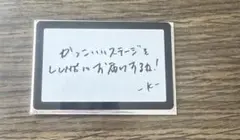 かっこいいステージを
しんけんにお届けするね!
-K-